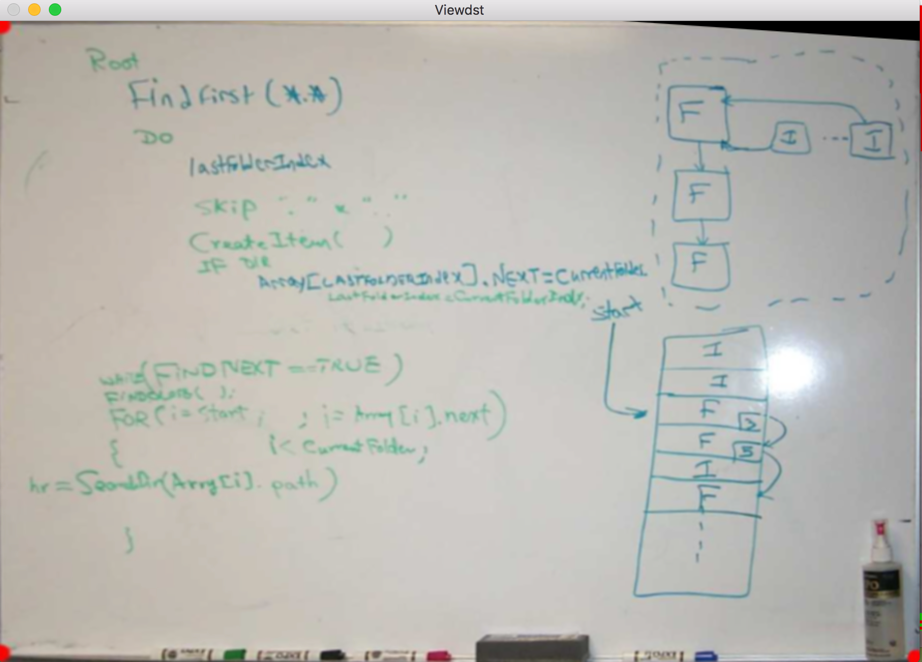 Viewdst
Root
FindFirst (*.*)
DO
lastFolderIndex
Skip "." & ".."
CreateItem( )
IF DIR
ARRAY[LASTFOLDERINDEX].NEXT=CurrentFolder
LastFolderIndex=CurrentFolderIndx;
while(FINDNEXT==TRUE)
FINDCLOSE( );
FOR(i=Start; ; i=Array[i].next)
{ i<CurrentFolder;
hr=SearchDir(Array[i].path)
}
F
I ... I
F
F
Start
I
I
F 2
F 5
I
F